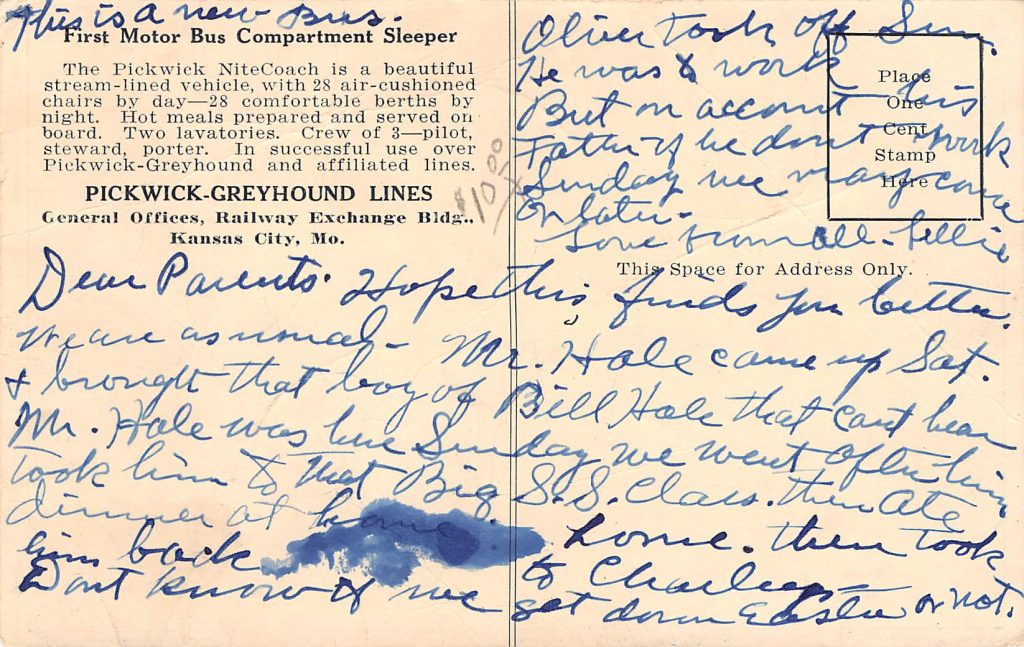 This is a new Bus.
First Motor Bus Compartment Sleeper
The Pickwick NiteCoach is a beautiful
stream-lined vehicle, with 28 air-cushioned
chairs by day—28 comfortable berths by
night. Hot meals prepared and served on
board. Two lavatories. Crew of 3—pilot,
steward, porter. In successful use over
Pickwick-Greyhound and affiliated lines.
PICKWICK-GREYHOUND LINES
General Offices, Railway Exchange Bldg.,
Kansas City, Mo.
$10.00
Dear Parents. Hope this finds you better.
We are as usual - Mr. Hale came up Sat.
& brought that boy of Bill Hale that cant hear
Mr. Hale was here Sunday we went after him
took him to that Big S.S. Class. then ate
dinner at home. home. then took
him back to Charleys
Dont know if we get down Easter or not.
Oliver took off Sun.
He was to work
But on account his
Father if he dont work
Sunday we may come
or later.
Love from all - Lillie
Place
One
Cent
Stamp
Here
This Space for Address Only.